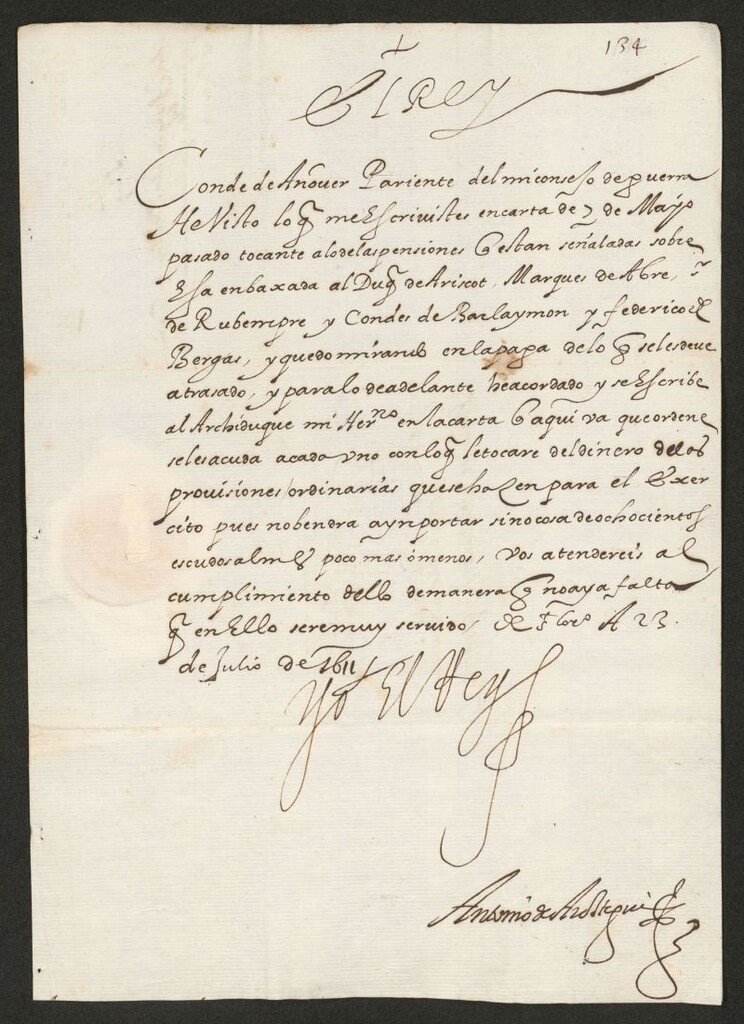 134
El Rey
Conde de Añover Pariente del mi consejo de guerra
He Visto lo q̃ me Escrivistes en carta de 7 de Mayo
pasado tocante a lo de las pensiones q̃ estan señaladas sobre
Esa enbaxada al Duq̃ de Ariscot, Marques de Abre,
de Rubempre y Condes de Barlaymon y federico de
Bergas, y quedo mirando en la paga de lo q̃ se les deve
atrasado, y para lo de adelante he acordado y se Escribe
al Archiduque mi Her.no en la carta q̃ aqui va que ordene
se les acuda a cada vno con lo q̃ le tocare del dinero de las
provisiones ordinarias que se hazen para el Exer
cito pues no bendra a ynportar sino cosa de ochocientos
escudos al mes poco mas o menos, vos atendereis al
cumplimiento dello de manera q̃ no aya falta
q̃ en Ello sere muy servido, de A 23.
de Julio de 1611
Yo El Rey
Antonio de Aroztegui